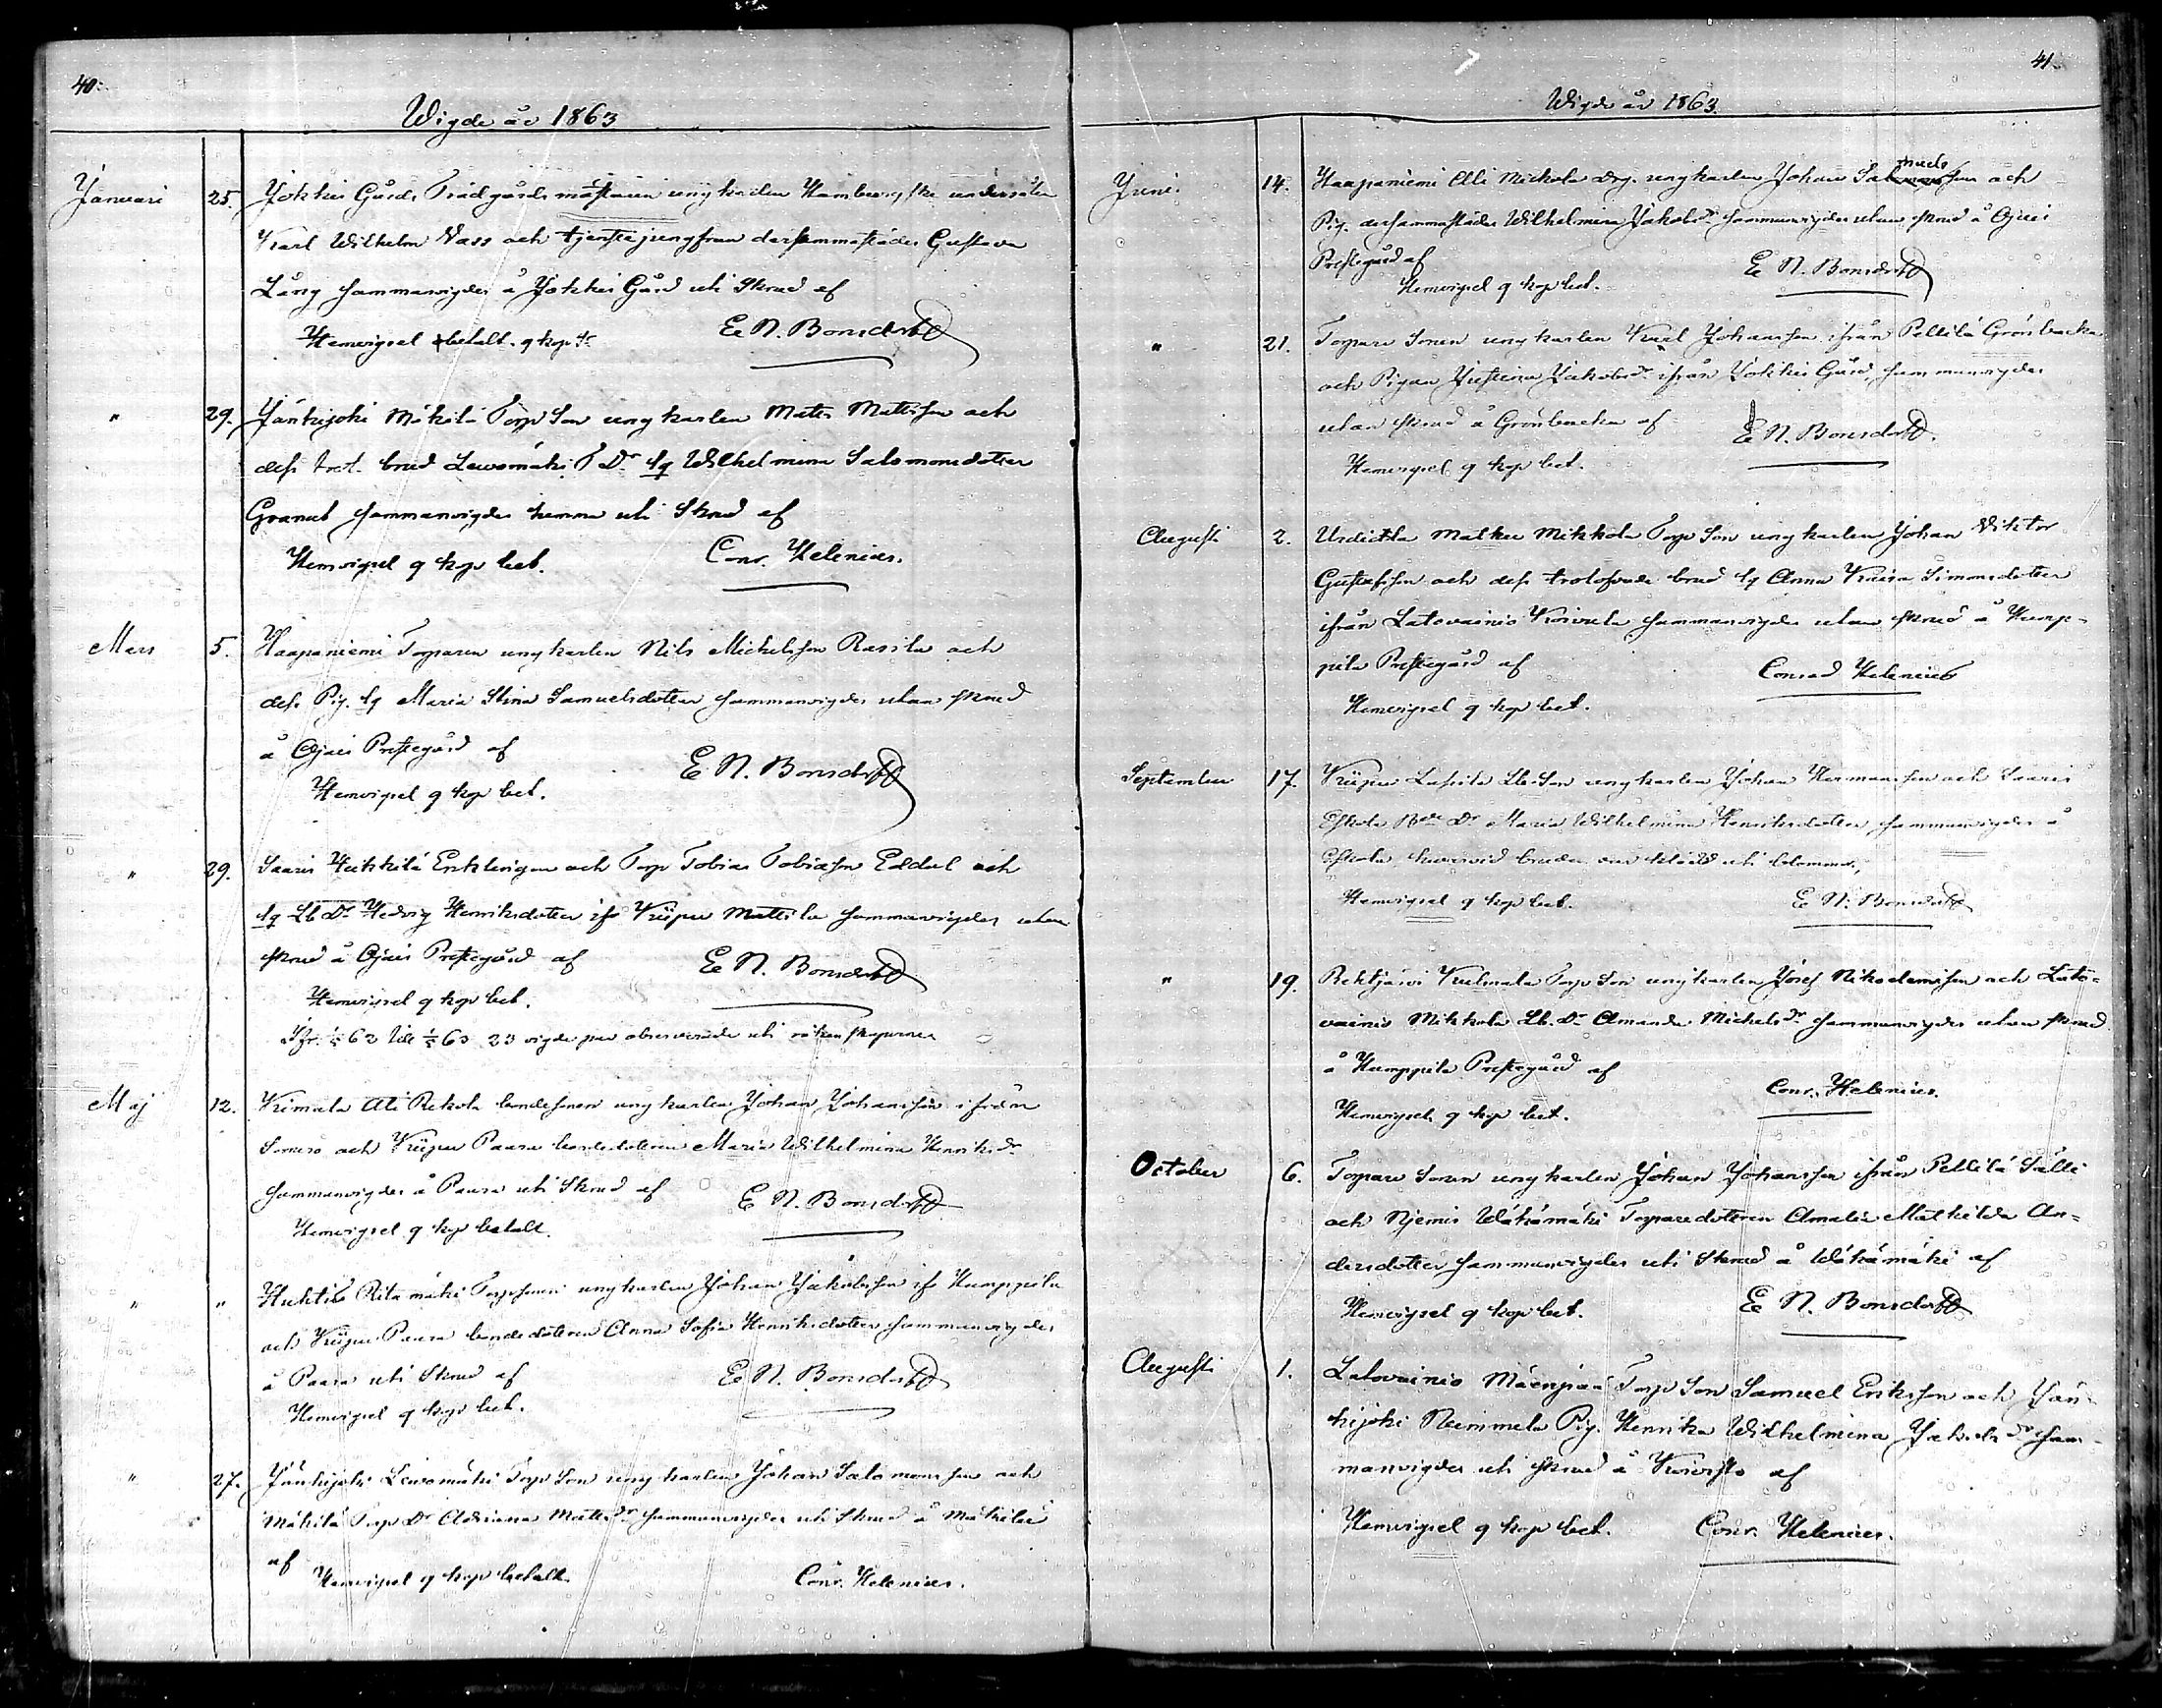 40.
Wigde år 1863
Januari 25. Jokkis Gårds Trädgårdsmästaren ungkarlen Hamburgske undersåten
Karl Wilhelm Vass och tjenstejungfrun dersammastädes Gustava
Lång sammanvigdes å Jokkis Gård uti Skrud af
Hemvigsel betalt. q kop
E N. Bonsdorff
" 29. Jänhijoki Mäkilä Torp Son ungkarlen Matts Mattsson och
dess trol. brud Lewomäki T Dr Iq Wilhelmina Salomonsdotter
Granat sammanvigdes hemma uti Skrud af
Hemvigsel q kop bet.
Conr. Helenius.
Mars 5. Haapaniemi Torparen ungkarlen Nils Michelsson Rasila och
dess Pig. Iq Maria Stina Samuelsdotter sammanvigdes utan skrud
å Ojais Prestegård af
Hemvigsel q kop bet.
E N. Bonsdorff
" 29. Saaris Heikkilä Enklingen och Torp Tobias Tobiasson Eldal och
Iq Lb Dr Hedvig Henriksdotter ifr Kiipu Mattila sammanvigdes utan
skrud å Ojais Prestegård af
Hemvigsel q kop bet.
E N. Bonsdorff
62 till 63 23 vigde par observerade uti räkenskaperna
Maj 12. Kimala Ali Rekola bondesonen ungkarlen Johan Johansson ifrån
Somero och Kiipu Paara bondedottren Maria Wilhelmina Henriksdr
sammanvigdes å Paara uti Skrud af
Hemvigsel q kop betalt.
E N. Bonsdorff
" " Huhtis Ritamäki Torpsonen ungkarlen Johan Jakobsson ifr Humppila
och Kiipu Paara bondedottren Anna Sofia Henriksdotter sammanvigdes
å Paara uti Skrud af
Hemvigsel q kop bet.
E N. Bonsdorff
" 27. Jänhijoki Lewomäki Torp Son ungkarlen Johan Salomonsson och
Mäkilä Torp Dr Adriana Mattsdr sammanvigdes uti Skrud å Mäkilä
af
Hemvigsel q kop betalt.
Conr. Helenius.
41.
Wigde år 1863.
Juni. 14. Haapaniemi Ali Mickola drg. ungkarlen Johan och
Pig. dersammastädes Wilhelmina Jakobsdr sammanvigdes utan skrud å Ojais
Prestegård af
Hemvigsel q kop bet.
E N. Bonsdorff
" 21. Torpare Sonen ungkarlen Karl Johansson ifrån Pellilä Grönbacka
och Pigan Justina Jakobsdr ifrån Jokkis Gård sammanvigdes
utan skrud å Grönbacka af
Hemvigsel q kop bet.
E N. Bonsdorff.
Augusti 2. Urdiala Matku Mikkola Torp Son ungkarlen Johan Viktor
Gustafsson och dess trolofvade brud Iq Anna Kaisa Simonsdotter
ifrån Latovainio Koivula sammanvigdes utan skrud å Hump-
pila Prestegård af
Hemvigsel q kop bet.
Conrad Helenius
September 17. Kiipu Lassila Lb. Son ungkarlen Johan Hermansson och Saaris
Eskola Bde Dr Maria Wilhelmina Henriksdotter sammanvigdes å
Eskola hvarvid bruden var klädd uti blommor,
Hemvigsel q kop bet.
E N. Bonsdorff
" 19. Rehtjärvi Kulmala Torp Son ungkarlen Josef Nikodemisson och Lato-
vainio Mikkola Lb. Dr Amanda Michelsdr sammanvigdes utan skrud
å Humppila Prestegård af
Hemvigsel q kop bet.
Conr. Helenius.
October 6. Torpare Sonen ungkarlen Johan Johansson ifrån Pellilä Sälli
och Niemis Wähämäki Torparedottren Amalia Mathilda An-
dersdotter sammanvigdes uti Skrud å Wähämäki af
Hemvigsel q kop bet.
E N. Bonsdorff
Augusti 1. Latovainio Mäenpää Torp Son Samuel Eriksson och Jän-
hijoki Nimmela Pig. Henrika Wilhelmina Jakobsdr sam-
manvigdes uti skrud å af
Hemvigsel q kop bet.
Conr. Helenius.